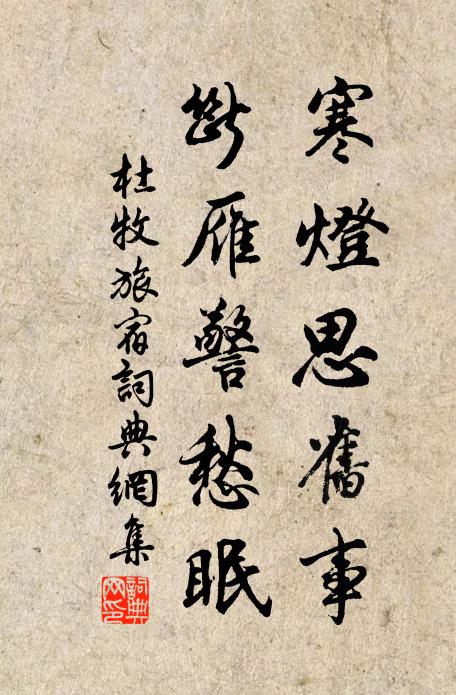 寒燈思舊事
斷雁警愁眠
杜牧旅宿詞典網集
詞典網印